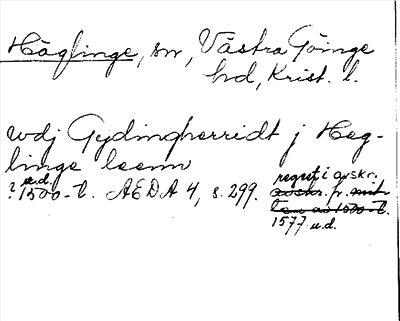 Häglinge, sn, Västra Göinge
hd, Krist. l.
wdj Gydingherridt j Heg-
linge
u.d.
? 1500-t. AEDA 4, s. 299.
regest i avskr.
avskr. fr. mit-
ten av 1500-t.
1577 u.d.